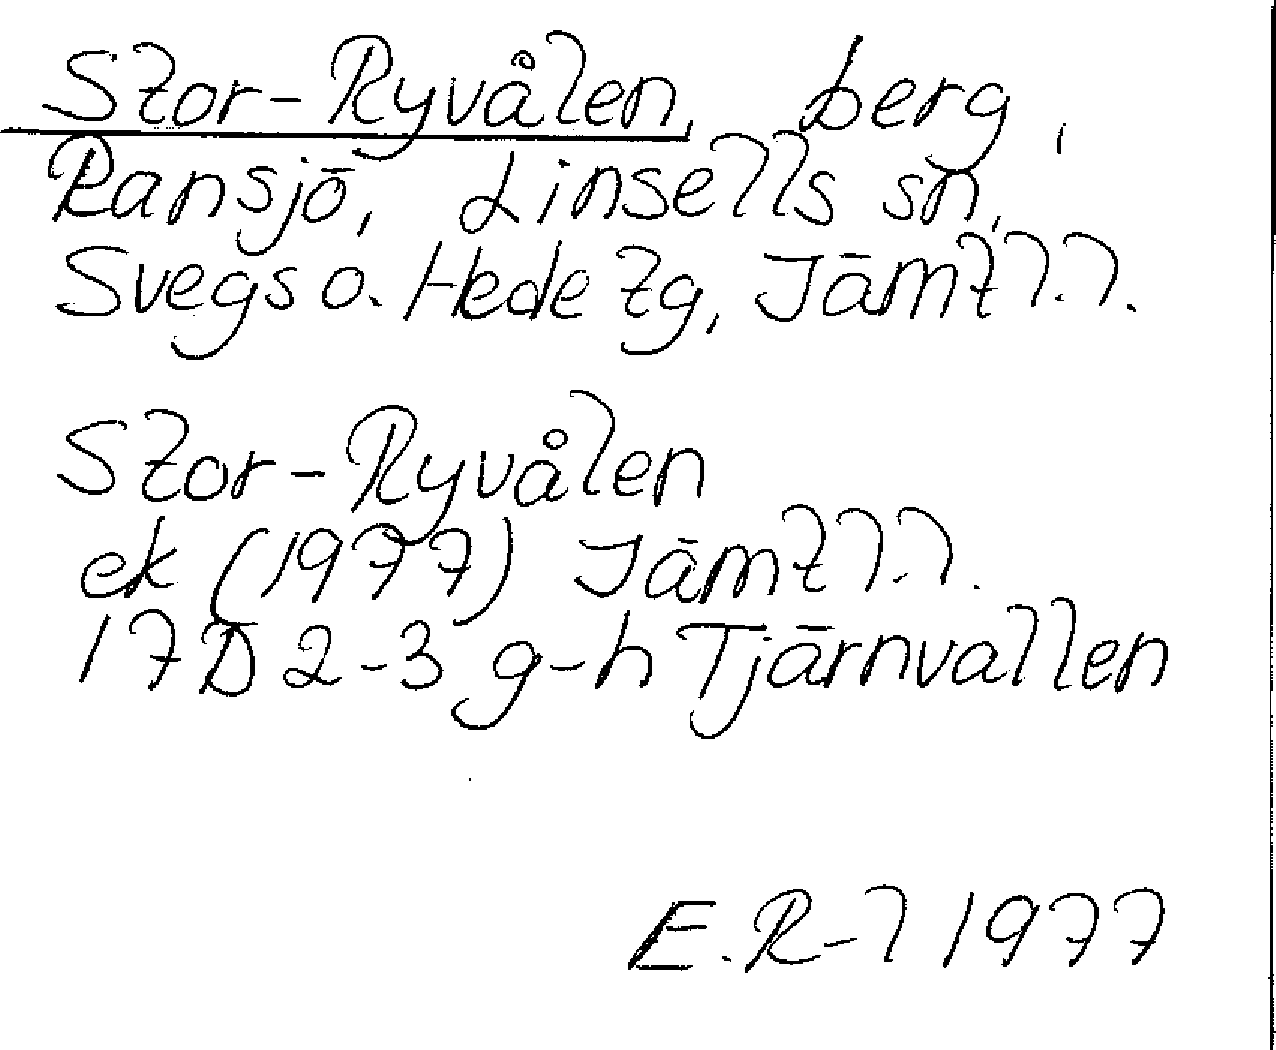 Stor-Ryvålen, berg,
Ransjö, Linsells sn,
Svegs o. Hede tg, Jämtl.l.
Stor-Ryvålen
ek (1977) Jämtl.l.
17D 2-3 g-h Tjärnvallen
E.R-l 1977